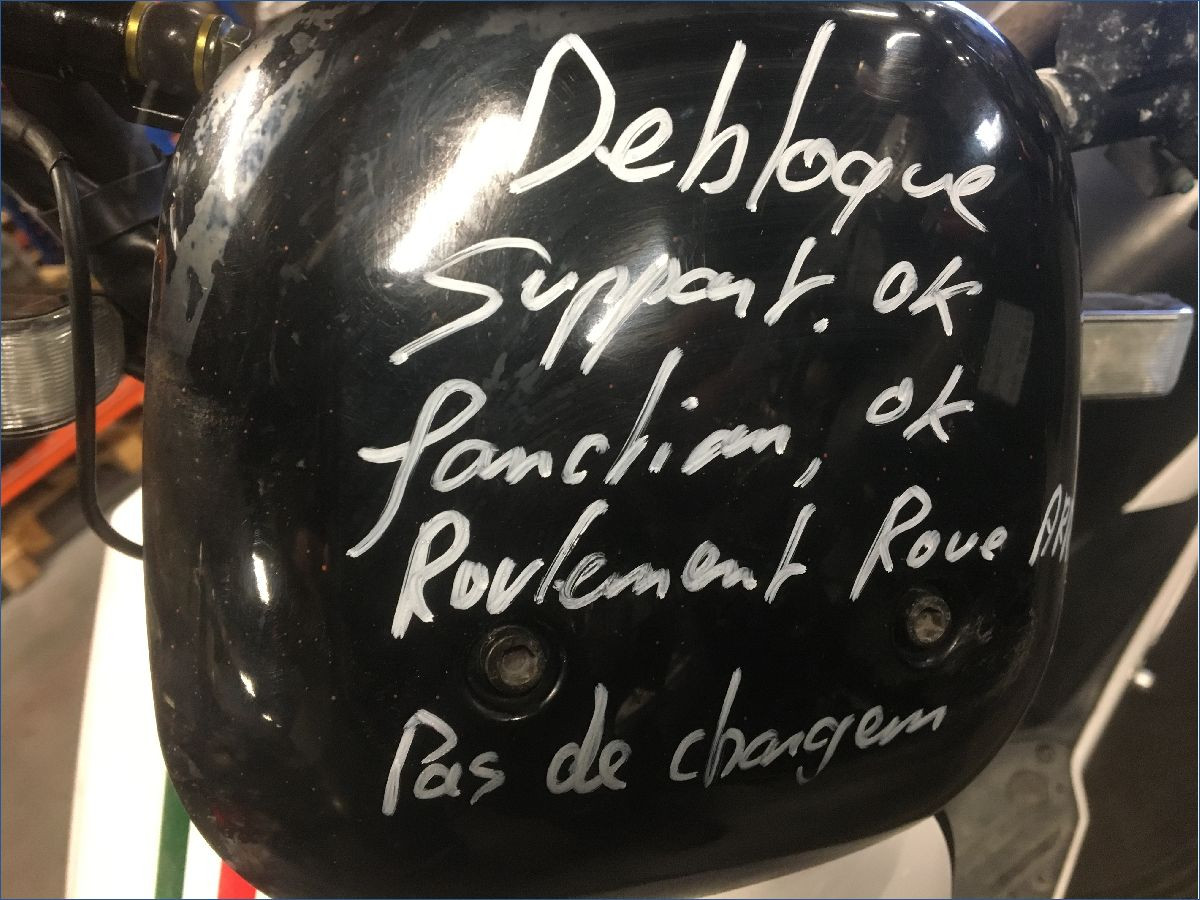 Debloque
Support. ok
fonction, ok
Roulement Roue AR
Pas de changem